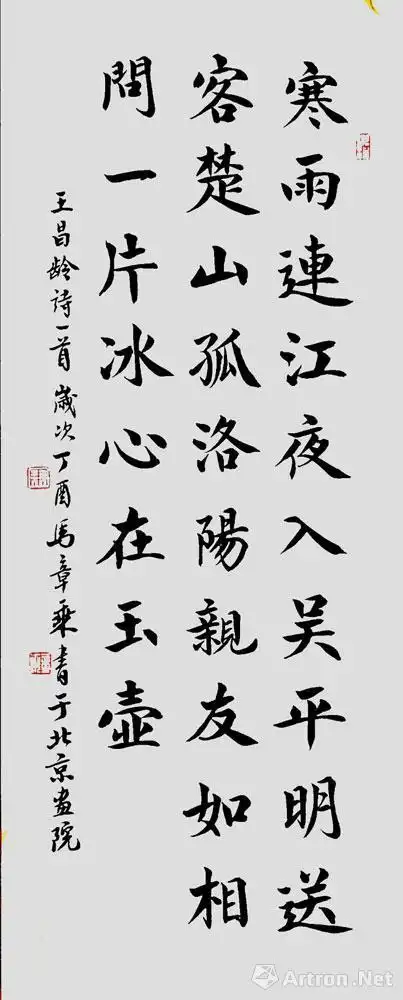 寒雨連江夜入吴平明送
客楚山孤洛陽親友如相
問一片冰心在玉壺
王昌龄诗一首歲次丁酉馬章乘書于北京畫院
Artron.Net